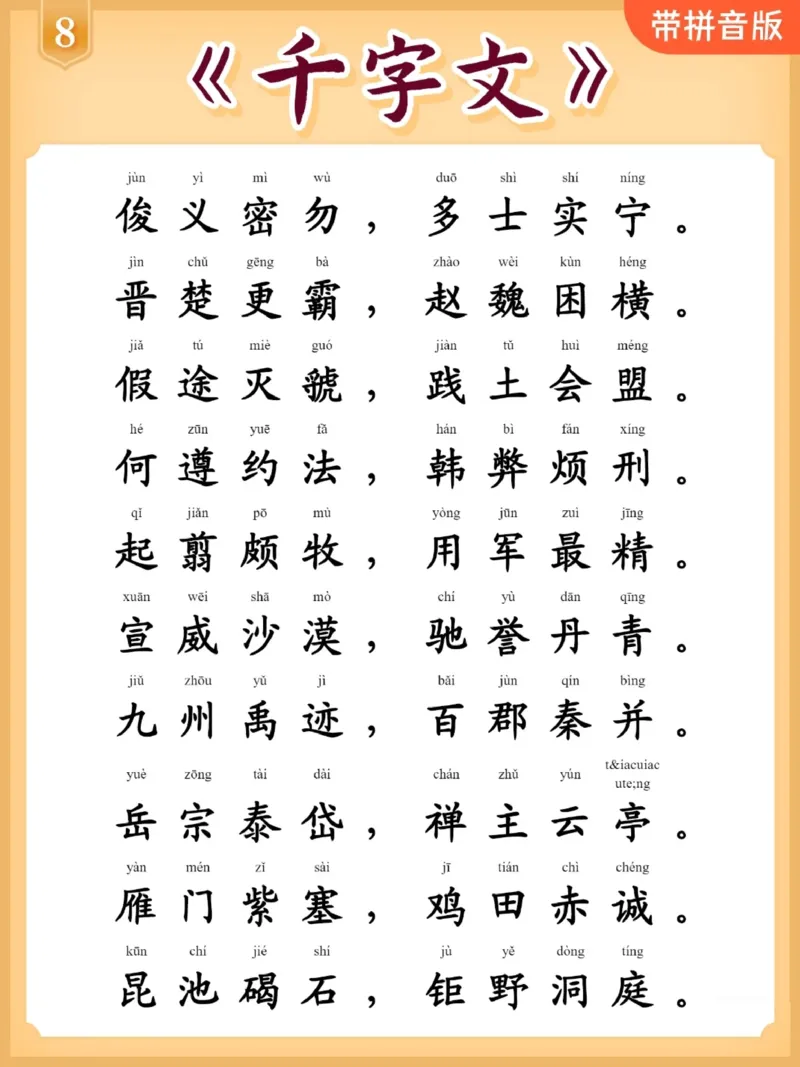 8
带拼音版
《千字文》
jùn yì mì wù duō shì shí níng
俊义密勿，多士实宁。
jìn chǔ gēng bà zhào wèi kùn héng
晋楚更霸，赵魏困横。
jiǎ tú miè guó jiàn tǔ huì méng
假途灭虢，践土会盟。
hé zūn yuē fǎ hán bì fán xíng
何遵约法，韩弊烦刑。
qǐ jiǎn pō mù yòng jūn zuì jīng
起翦颇牧，用军最精。
xuān wēi shā mò chí yù dān qīng
宣威沙漠，驰誉丹青。
jiǔ zhōu yǔ jì bǎi jùn qín bìng
九州禹迹，百郡秦并。
yuè zōng tài dài chán zhǔ yún t&iacuiacute;ng
岳宗泰岱，禅主云亭。
yàn mén zǐ sài jī tián chì chéng
雁门紫塞，鸡田赤诚。
kūn chí jié shí jù yě dòng tíng
昆池碣石，钜野洞庭。